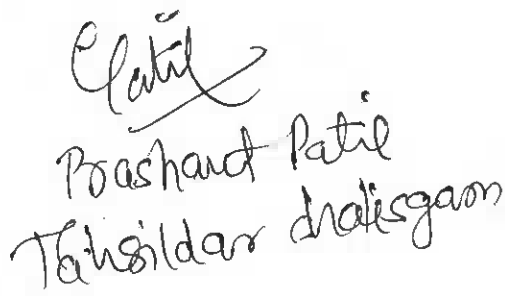 Patil
Prashant Patil
Tahsildar chalisgaon